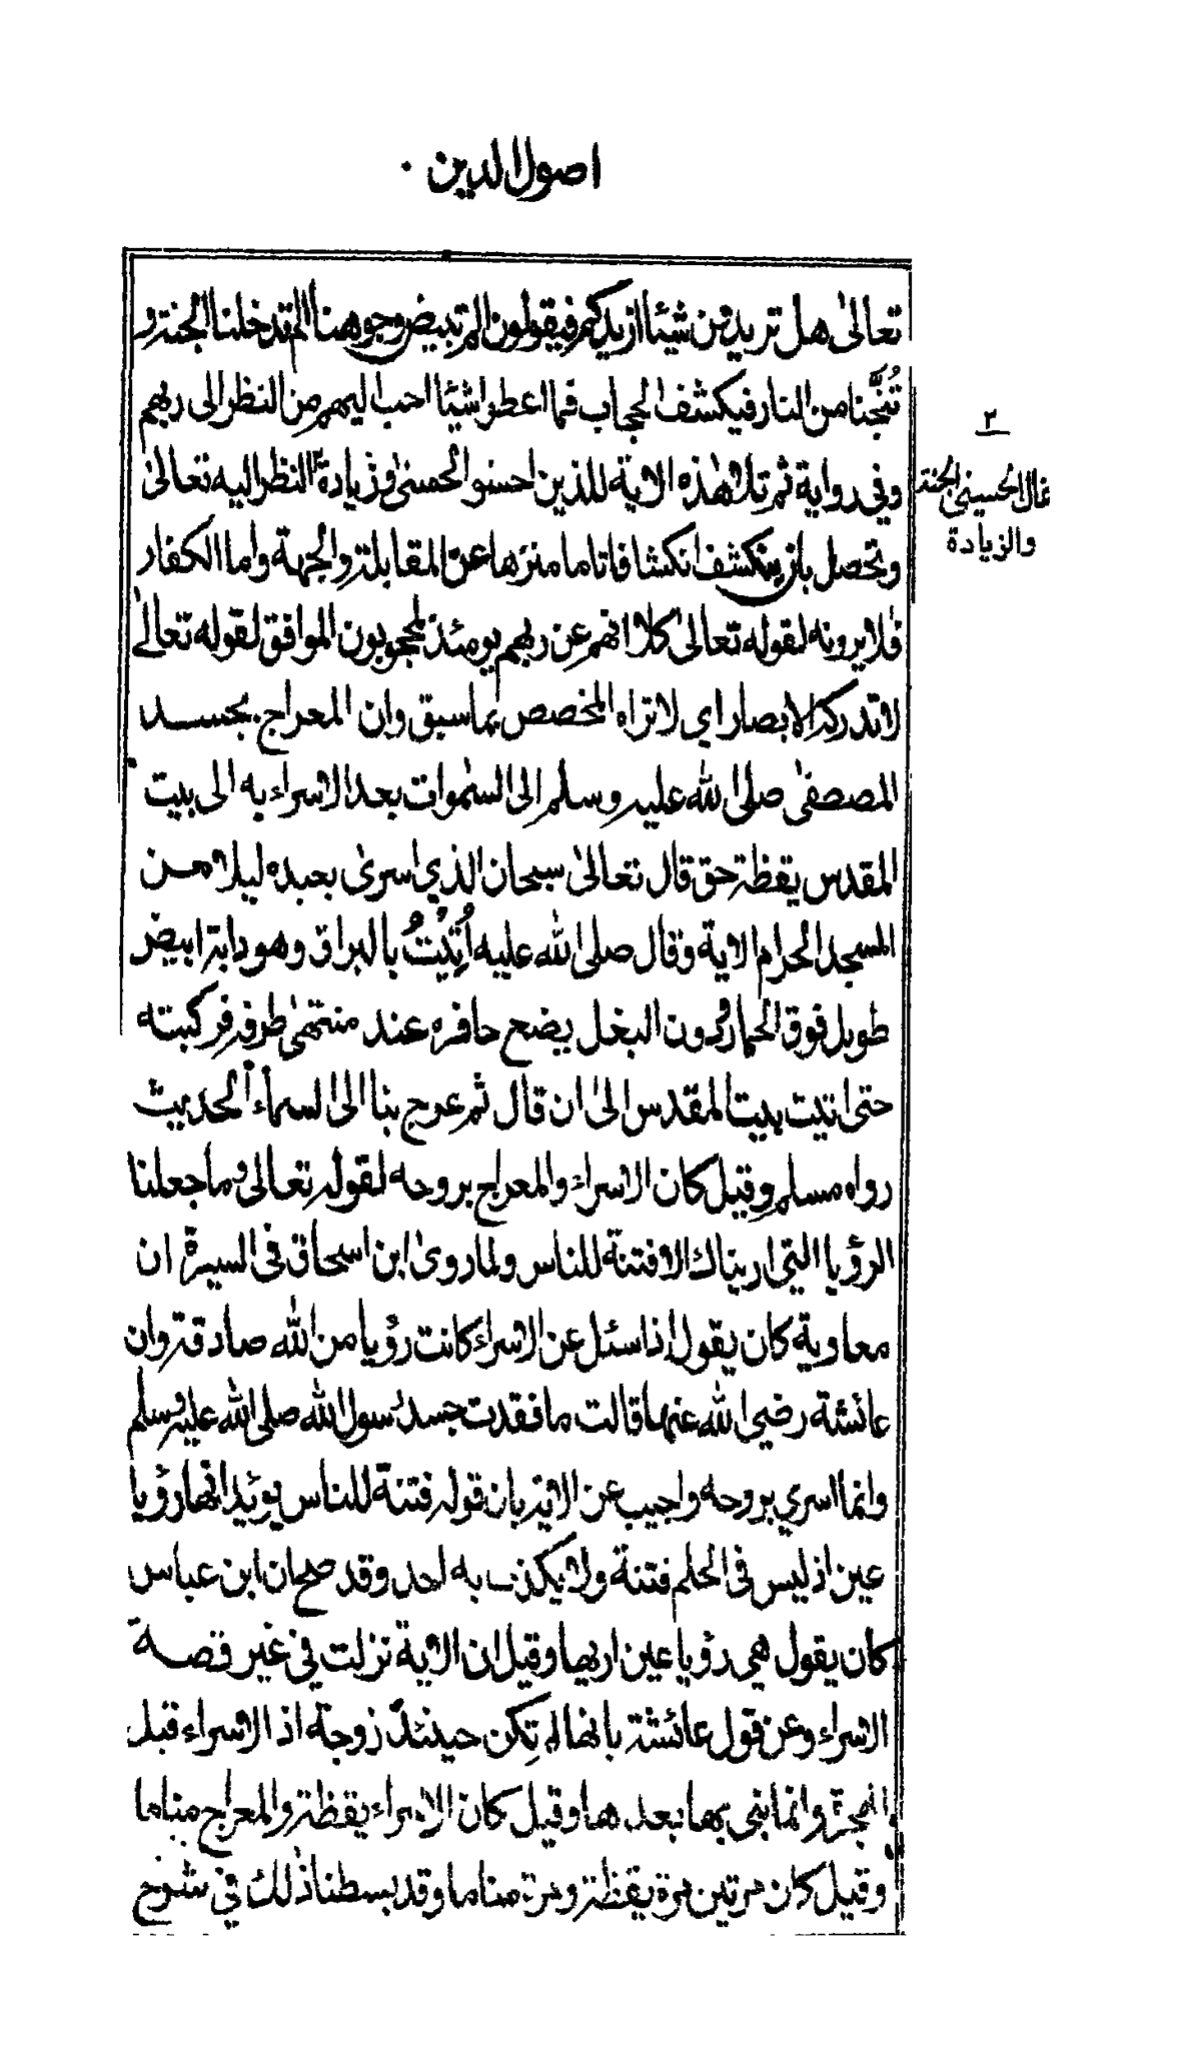 اصول الدين ٠
تعالىٰ هل تريدون شيئا ازيدكم فيقولون الم تبيض وجوهنا الم تدخلنا الجنة و
تُنَجِّنا من النار فيكشف الحجاب فما اعطوا شيئا احب اليهم من النظر الى ربهم
وفي رواية ثم تلا هٰذه الاية للذين احسنوا الحسنىٰ وزيادة ٢ النظر اليه تعالىٰ
وتحصل بان ينكشف انكشافا تاما منزها عن المقابلة والجهة واما الكفار
فلا يرونه لقوله تعالىٰ كلا انهم عن ربهم يومئذ لمحجوبون الموافق لقوله تعالىٰ
لا تدركه الابصار اي لا تراه المخصص بما سبق وان المعراج بجسد
المصطفىٰ صلى الله عليه وسلم الى السمٰوات بعد الاسراء به الى بيت
المقدس يقظة حق قال تعالىٰ سبحان الذي اسرىٰ بعبده ليلا من
المسجد الحرام الاية وقال صلى الله عليه اُتِيْتُ بالبراق وهو دابة ابيض
طويل فوق الحمار ودون البغل يضع حافره عند منتهىٰ طرفه فركبته
حتى اتيت بيت المقدس الىٰ ان قال ثم عرج بنا الى السماء الحديث
رواه مسلم وقيل كان الاسراء والمعراج بروحه لقوله تعالىٰ وما جعلنا
الرؤيا التي اريناك الا فتنة للناس ولما روىٰ ابن اسحاق فى السيرة ان
معاوية كان يقول اذا سئل عن الاسراء كانت رؤيا من الله صادقة وان
عائشة رضي الله عنها قالت ما فقدت جسد رسول الله صلى الله عليه وسلم
وانما اسري بروحه واجيب عن الاية بان قوله فتنة للناس يؤيد انها رؤيا
عين اذ ليس فى الحلم فتنة ولا يكذب به احد وقد صح ان ابن عباس
كان يقول هي رؤيا عين اريها وقيل ان الاية نزلت في غير قصة
الاسراء وعن قول عائشة بانها لم تكن حينئذ زوجة اذ الاسراء قبل
الهجرة وانما بنى بها بعدها وقيل كان الاسراء يقظة والمعراج مناما
وقيل كان مرتين مرة يقظة ومرة مناما وقد بسطنا ذٰلك في شرح
٢
قال الحسنى الجنة
والزيادة